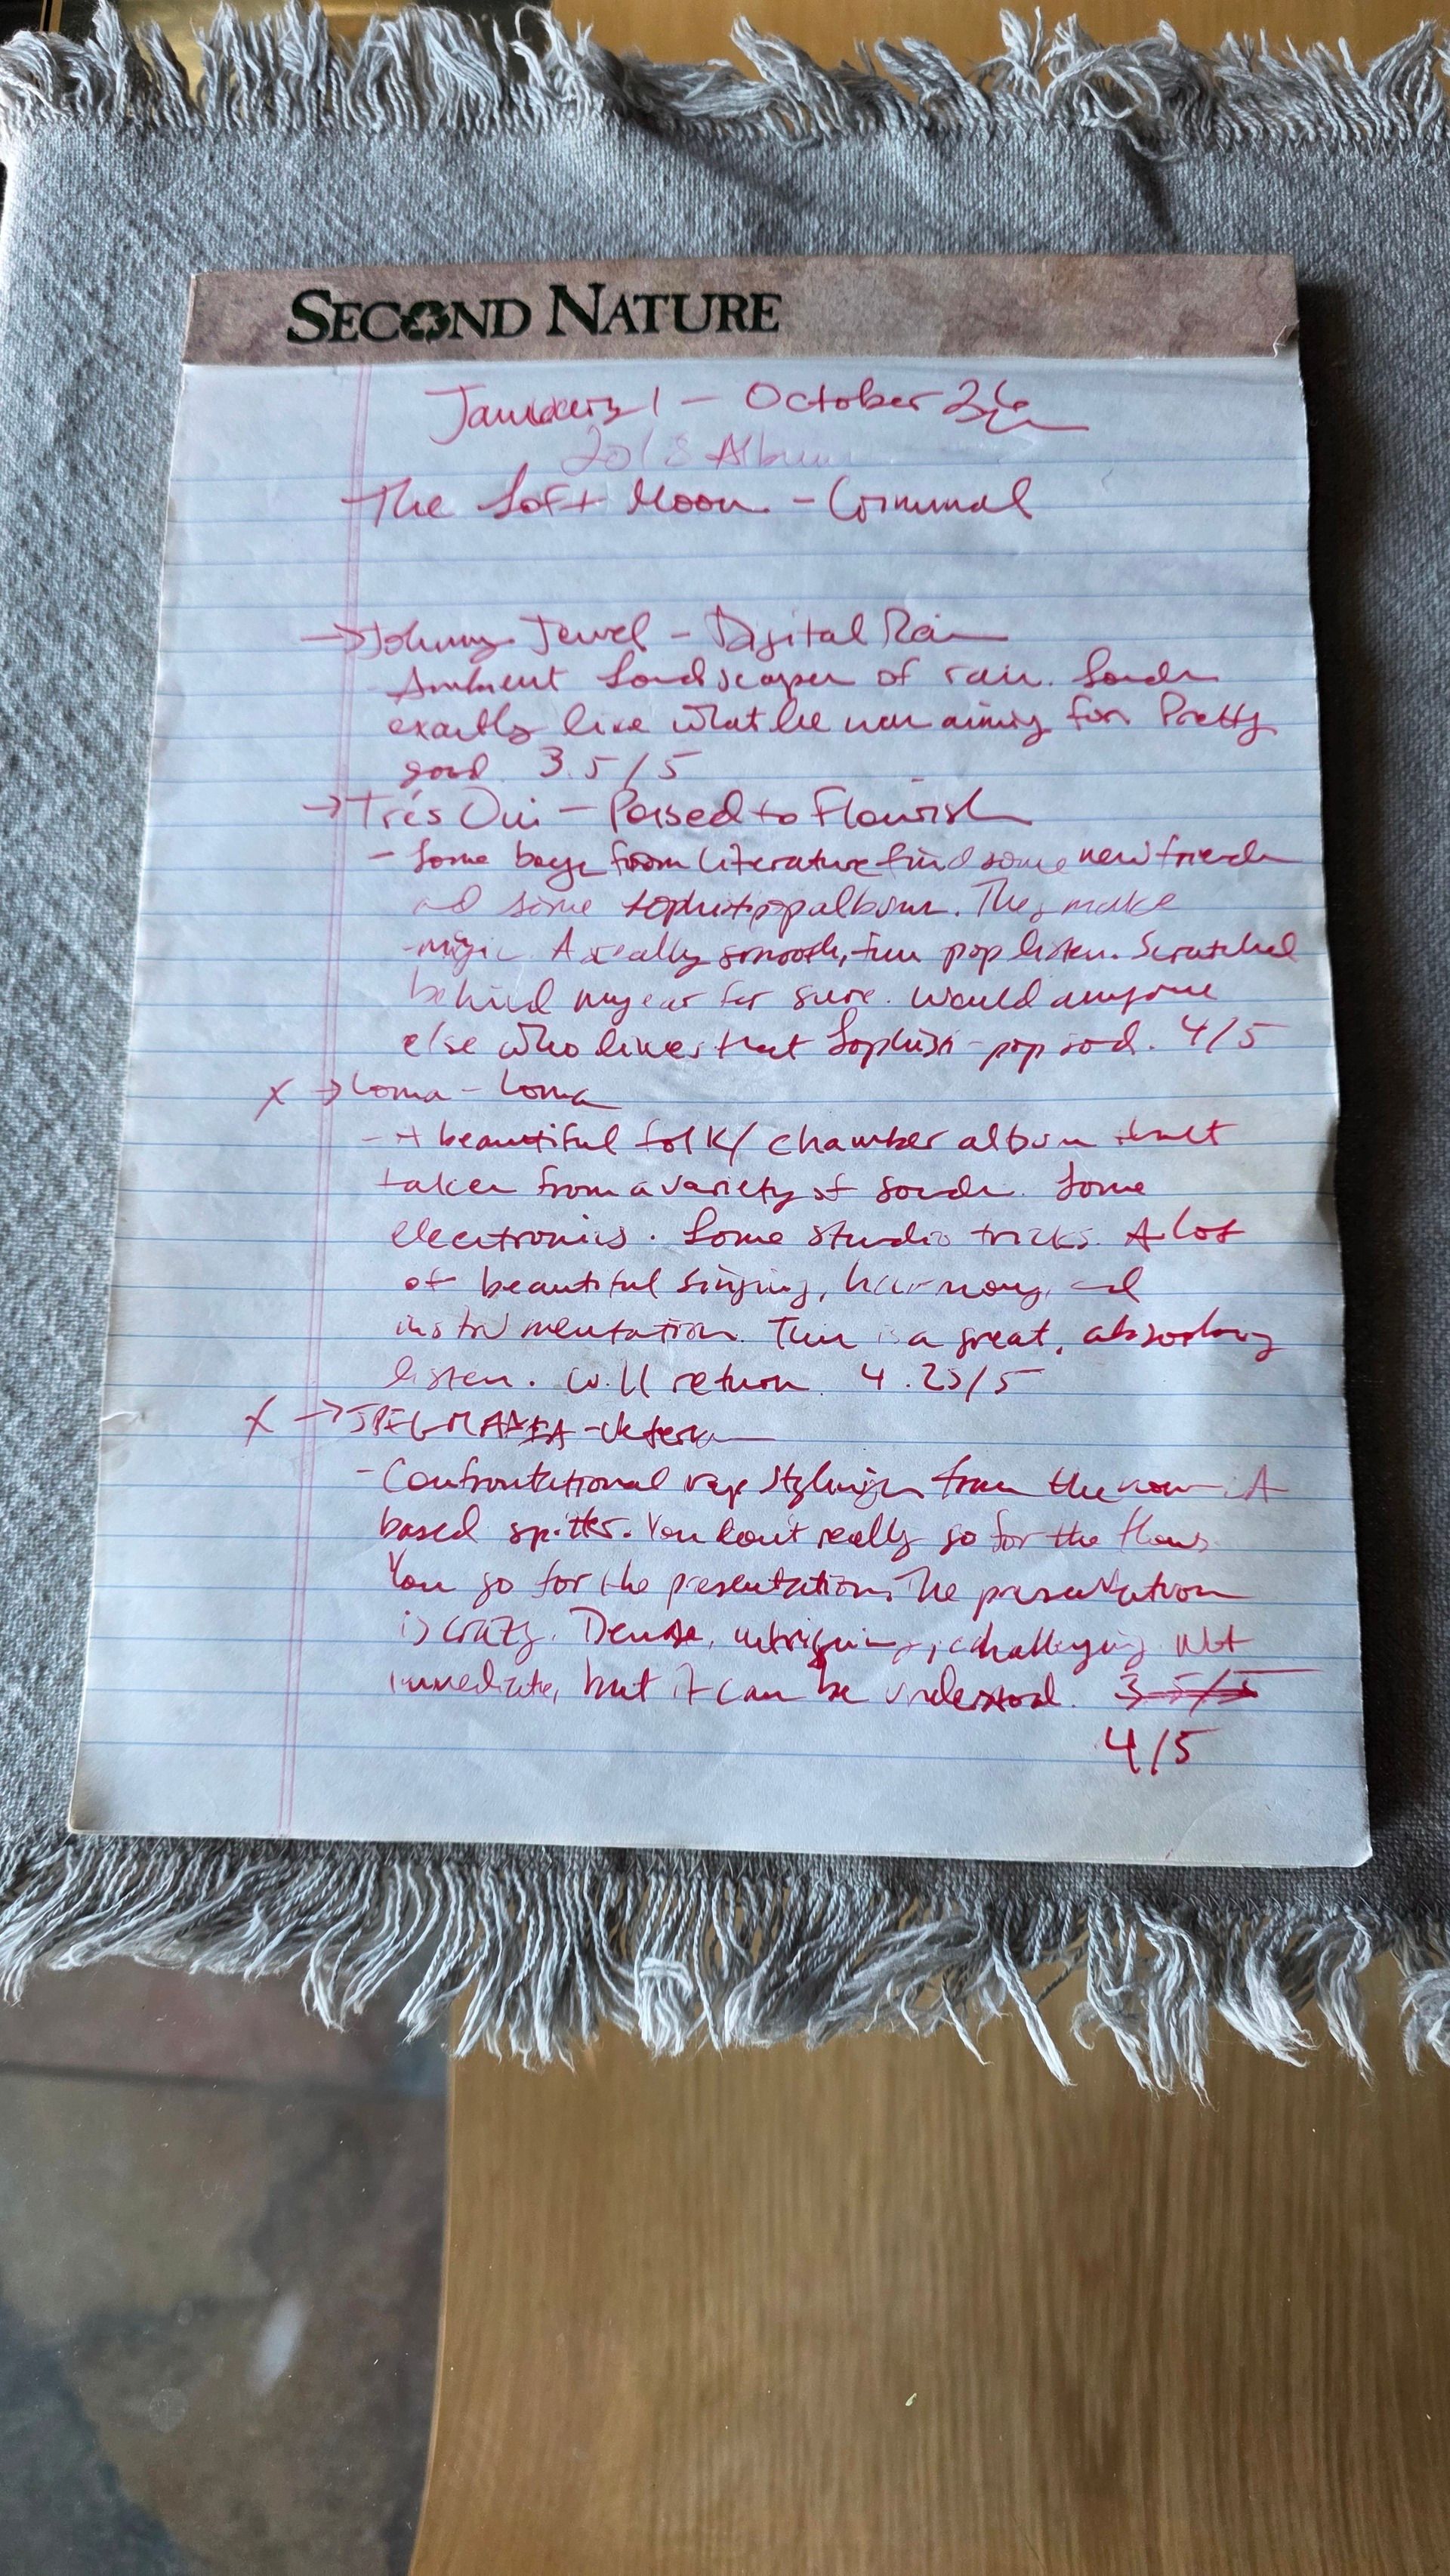 SECOND NATURE
January 1 - October 26
2018 Albums
The Soft Moon - Criminal
→ Johnny Jewel - Digital Rain
Ambient Soundscapes of rain. Sounds
exactly like what he was aiming for. Pretty
good. 3.5/5
→ Trés Oui - Poised to Flourish
- Some boys from Literature find some new friends
and some sophistipop albums. They make
magic. A really smooth, fun pop listen. Scratched
behind my ear for sure. Would anyone
else who likes that Sophisti-pop sound. 4/5
X → Loma - Loma
- A beautiful folk/chamber album that
takes from a variety of sounds. Some
electronics. Some studio tricks. A lot
of beautiful singing, harmony, and
instrumentation. This is a great, absorbing
listen. Will return. 4.25/5
X → JPEGMAFIA - Veteran
- Confrontational rap stylings from the now LA
based spitter. You don't really go for the flows.
You go for the presentation. The presentation
is crazy. Dense, intriguing, challenging. Not
immediate, but it can be understood. 3.5/5
4/5